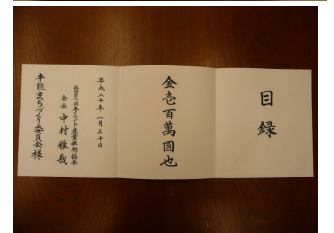 目録
金壱百萬圓也
平成二十年一月三十日
会長 中村雅哉
本能まちづくり委員会様